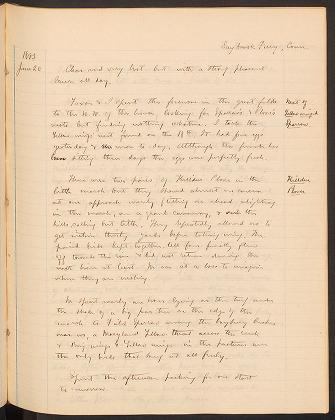 Saybrook Ferry, Conn.
1893
June 20
Clear and very hot but with a strong pleasant
breeze all day.
I spent the forenoon in the great fields
to the N.W. of the house, looking for Sparrow's
nests but finding nothing whatever. I took the
nest found on the It had five eggs
yesterday & no more to-day. Although the female has
been sitting three days the eggs were perfectly fresh.
Nest of
Yellow-winged
Sparrow
There were two pairs of Killdeer Plover in the
little marsh but they
at our approach merely flitting on ahead alighting
in the marsh, on a
but little. They repeatedly allowed us to
get within thirty yards before taking wing. The
paired birds kept together, all four finally flew
off towards the river & did not return during the
next hour at least. We are at a loss to imagine
where they are nesting.
Killdeer
Plover
We spent nearly an hour lying on the turf under
the shade of a big tree on the edge of the
marsh. A Field Sparrow among the bayberry bushes
near us, a Maryland Yellow-throat across the creek
& Yellow-wings in the pasture were
the only birds that sang at all freely.
Spent the afternoon packing for our start
to-morrow.